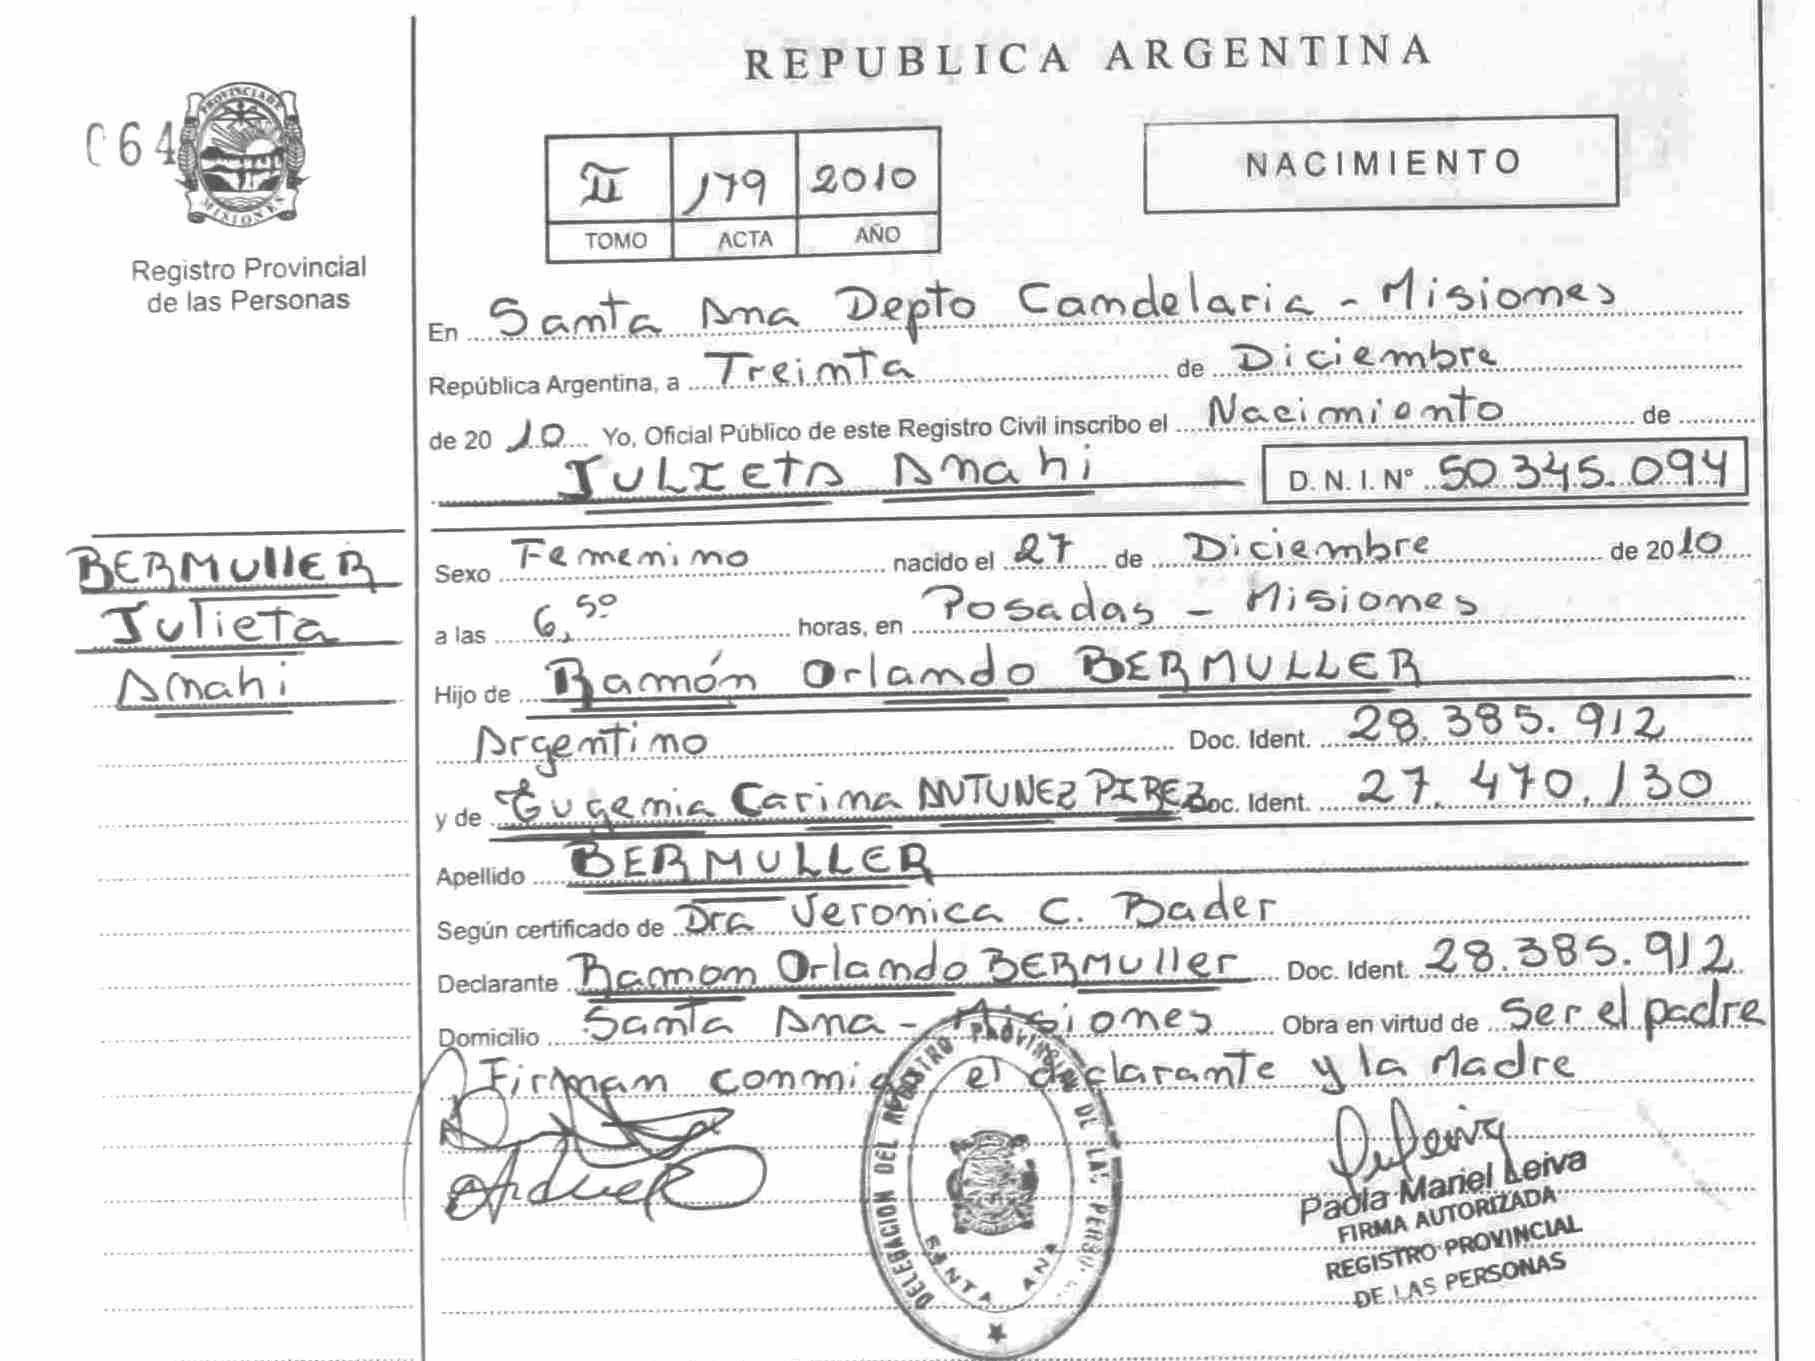 REPUBLICA ARGENTINA
064
PROVINCIA DE
MISIONES
Registro Provincial
de las Personas
II 179 2010
TOMO ACTA AÑO
NACIMIENTO
En Santa Ana Depto Candelaria - Misiones
República Argentina, a Treinta de Diciembre
de 2010 Yo, Oficial Público de este Registro Civil inscribo el Nacimiento de
JULIETA Anahi D. N. I. Nº 50.345.094
BERMULLER
Julieta
Anahi
Sexo Femenino nacido el 27 de Diciembre de 2010
a las 6,50 horas, en Posadas - Misiones
Hijo de Ramón Orlando BERMULLER
Argentino Doc. Ident. 28.385.912
y de Eugenia Carina ANTUNEZ PIREZ Doc. Ident. 27.470.130
Apellido BERMULLER
Según certificado de Dra Veronica C. Bader
Declarante Ramon Orlando BERMULLER Doc. Ident. 28.385.912
Domicilio Santa Ana - Misiones Obra en virtud de ser el padre
Firman conmigo el declarante y la Madre
DELEGACION DEL REGISTRO PROVINCIAL DE LAS PERSO
SANTA ANA
Paola Mariel Leiva
FIRMA AUTORIZADA
REGISTRO PROVINCIAL
DE LAS PERSONAS